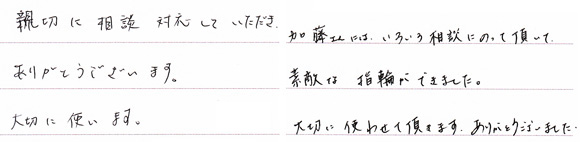 親切に相談対応していただき、
ありがとうございます。
大切に使います。
加藤さんには、いろいろ相談にのって頂いて、
素敵な指輪ができました。
大切に使わせて頂きます。ありがとうございました。